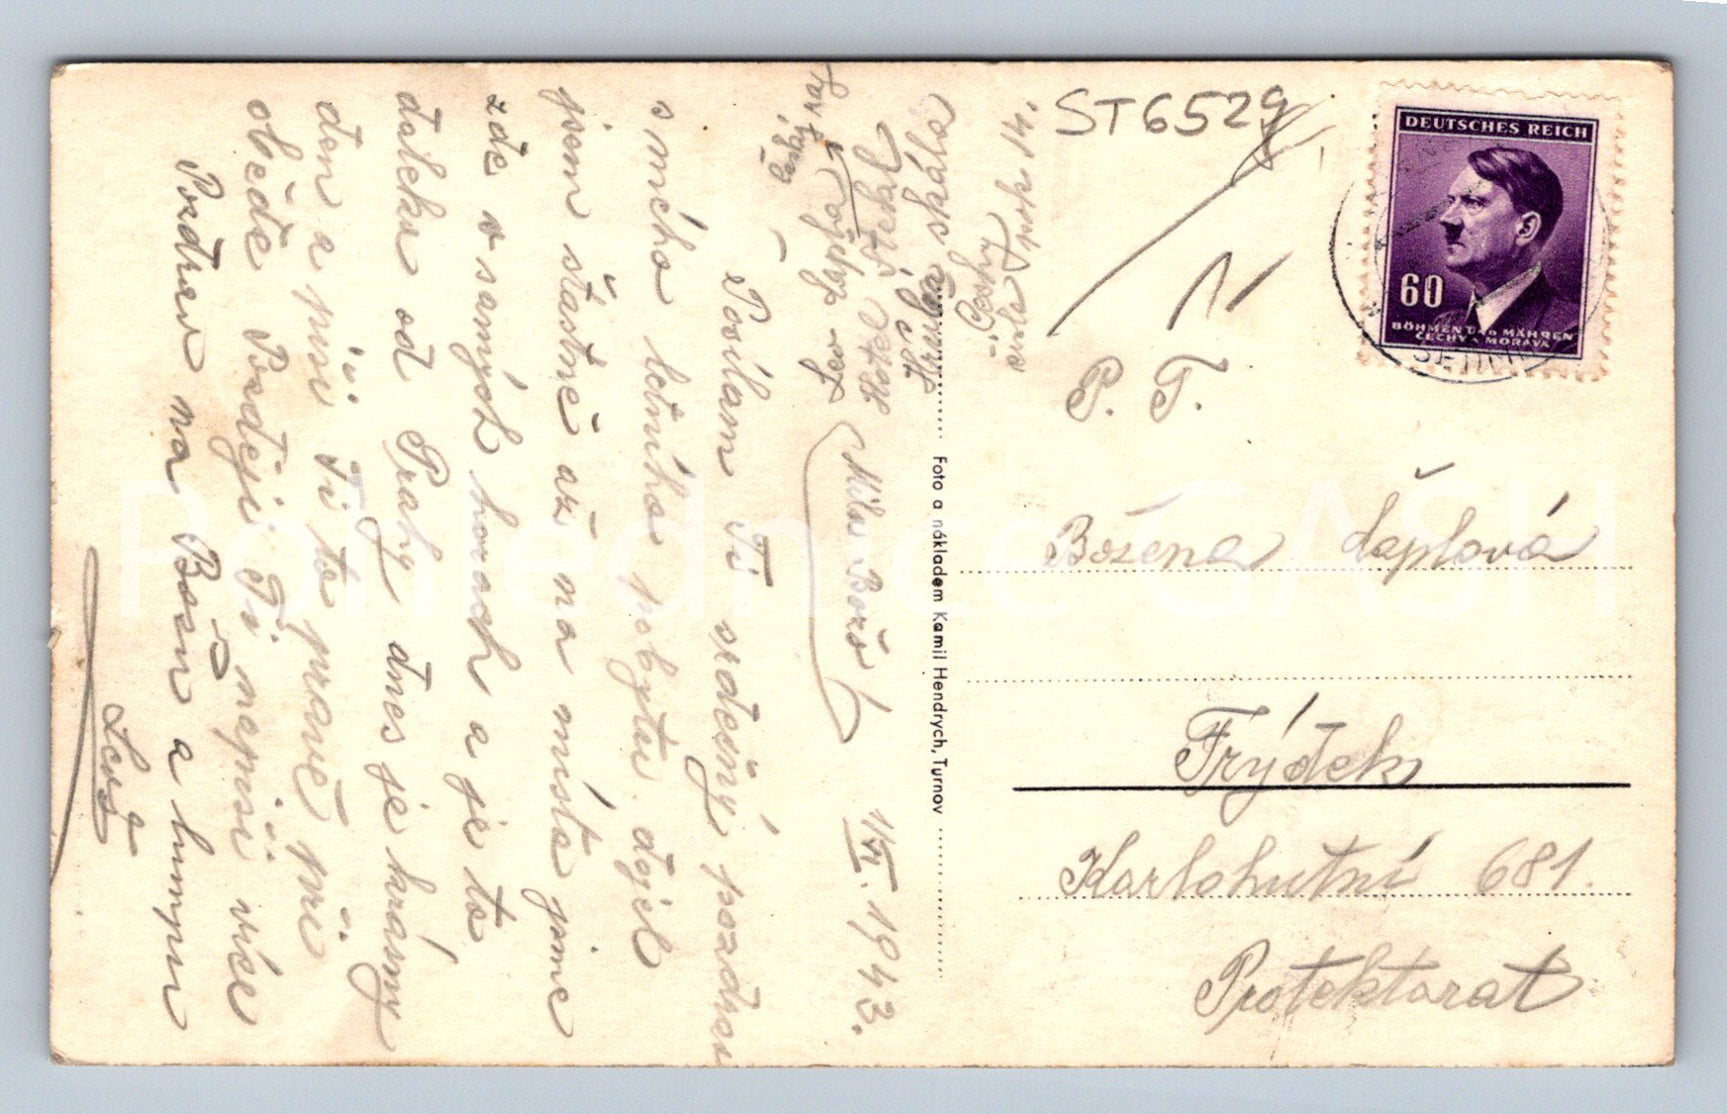 ST6529
DEUTSCHES REICH
60
BÖHMEN UND MÄHREN
ČECHY A MORAVA
P. T.
Božena Čaplová
Frýdek
Karlohutní 681.
Protektorat
Foto a nákladem Kamil Hendrych, Turnov
Český
14.
1/VI. 1943.
Milá Božo!
Posílám Ti srdečný pozdrav
s mého letního pobytu. dojel
jsem šťastně až na místo jsme
zde v samých horách a je to
daleko od Prahy dnes je krásný
den a píši Ti to právě při
obědě Později Ti napíši více
Pozdrav na
a
Pohlednice GASH